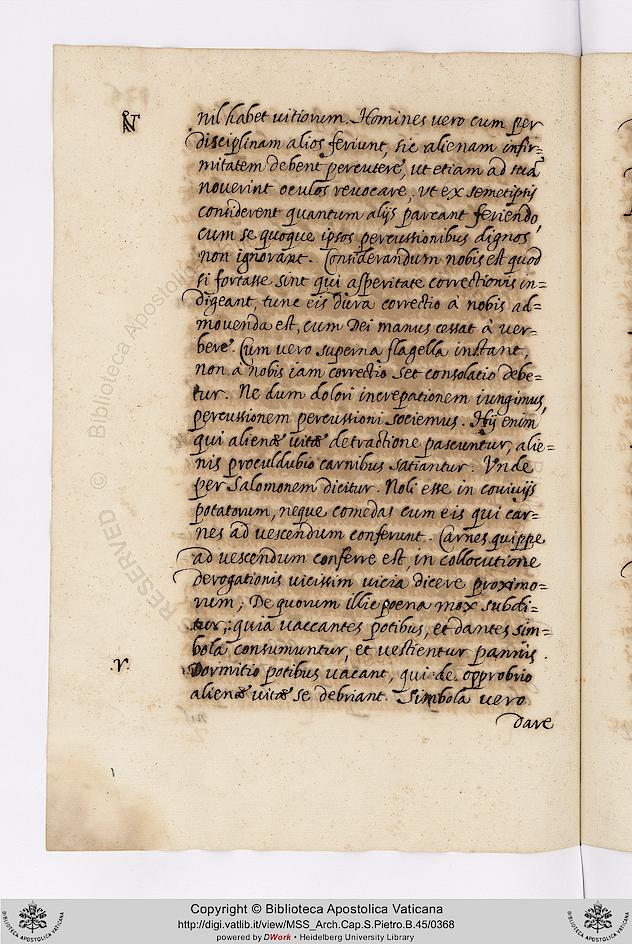 nil habet uitiorum. Homines vero cum per
disciplinam alios feriunt, sic alienam infir=
mitatem debent percutere, ut etiam ad sua
nouerint oculos reuocare. Vt ex semetipsis
considerent quantum alijs parcant feriendo,
cum se quoque ipsos percussionibus dignos
non ignorant. Considerandum nobis est quod
si fortasse sint qui asperitate correctionis in=
digeant, tunc eis dura correctio à nobis ad=
mouenda est, cum Dei manus cessat à ver=
bere. Cum vero superna flagella instant,
non à nobis iam correctio set consolatio debe=
tur. Ne dum dolori increpationem iungimus,
percussionem percussioni sociemus. Hij enim
qui alienæ uitæ detractione pascuntur, alie=
nis proculdubio carnibus satiantur. Vnde
per Salomonem dicitur. Noli esse in couiuijs
potatorum, neque comedas cum eis qui car=
nes ad vescendum conferunt. Carnes quippe
ad vescendum conferre est, in collocutione
derogationis uicissim uicia dicere proximo=
rum; De quorum illic poena mox subdi=
tur; quia uaccantes potibus, et dantes sim=
bola consumuntur, et uestientur pannis.
Dormitio potibus uacant, qui de opprobrio
alienæ uitæ se debriant. Simbola vero
dare
N
.r.
RESERVED © Biblioteca Apostolica
Copyright © Biblioteca Apostolica Vaticana
http://digi.vatlib.it/view/MSS_Arch.Cap.S.Pietro.B.45/0368
powered by DWork • Heidelberg University Library